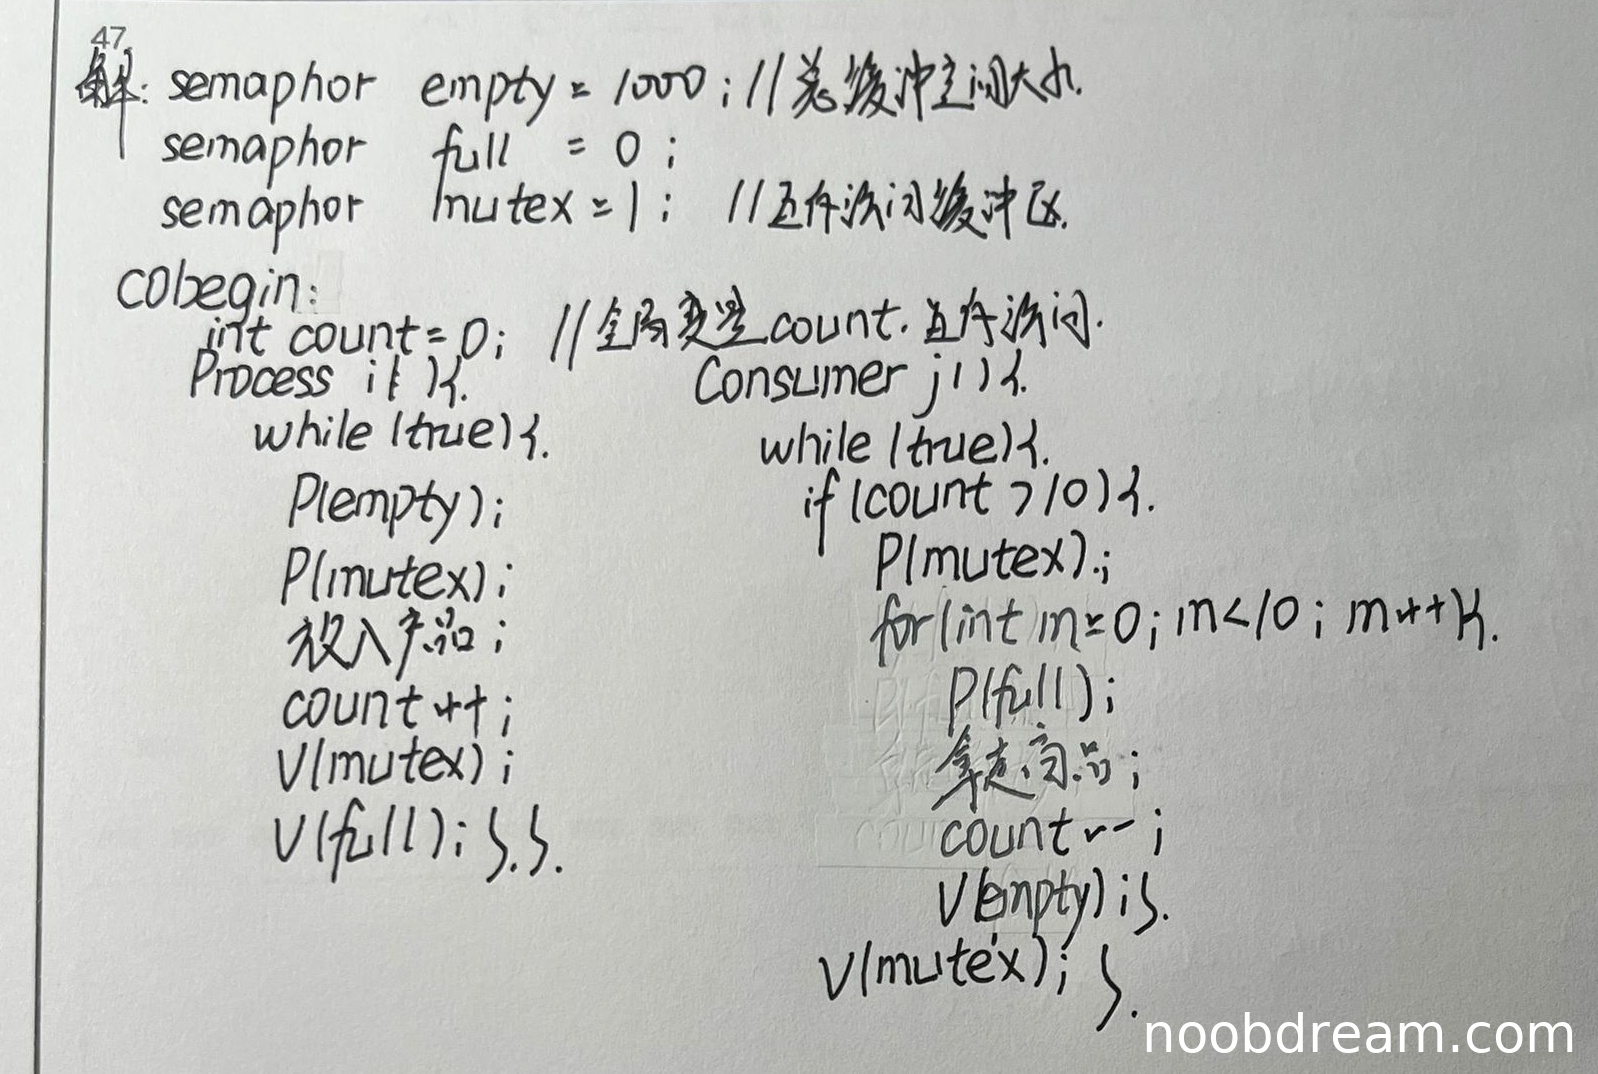 47
解: semaphor empty = 1000 ; //总缓冲空间大小.
semaphor full = 0 ;
semaphor mutex = 1 ; //互斥访问缓冲区.
cobegin:
int count = 0; //全局变量count. 互斥访问.
Process i( ){.
while (true){.
P(empty);
P(mutex);
放入产品;
count++;
V(mutex);
V(full); }.}.
Consumer j( ){.
while (true){.
if (count >10){.
P(mutex).;
for(int m=0; m<10; m++){.
P(full);
拿走商品;
count--;
V(empty);}.
V(mutex); }.
noobdream.com